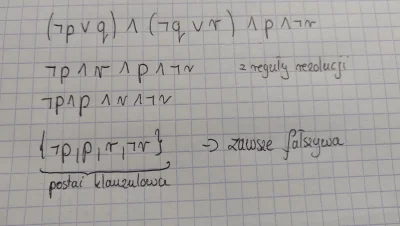 (¬p ∨ q) ∧ (¬q ∨ r) ∧ p ∧ ¬r
¬p ∧ r ∧ p ∧ ¬r z reguły rezolucji
¬p ∧ p ∧ r ∧ ¬r
{¬p, p, r, ¬r} → zawsze fałszywa
postać klauzulowa